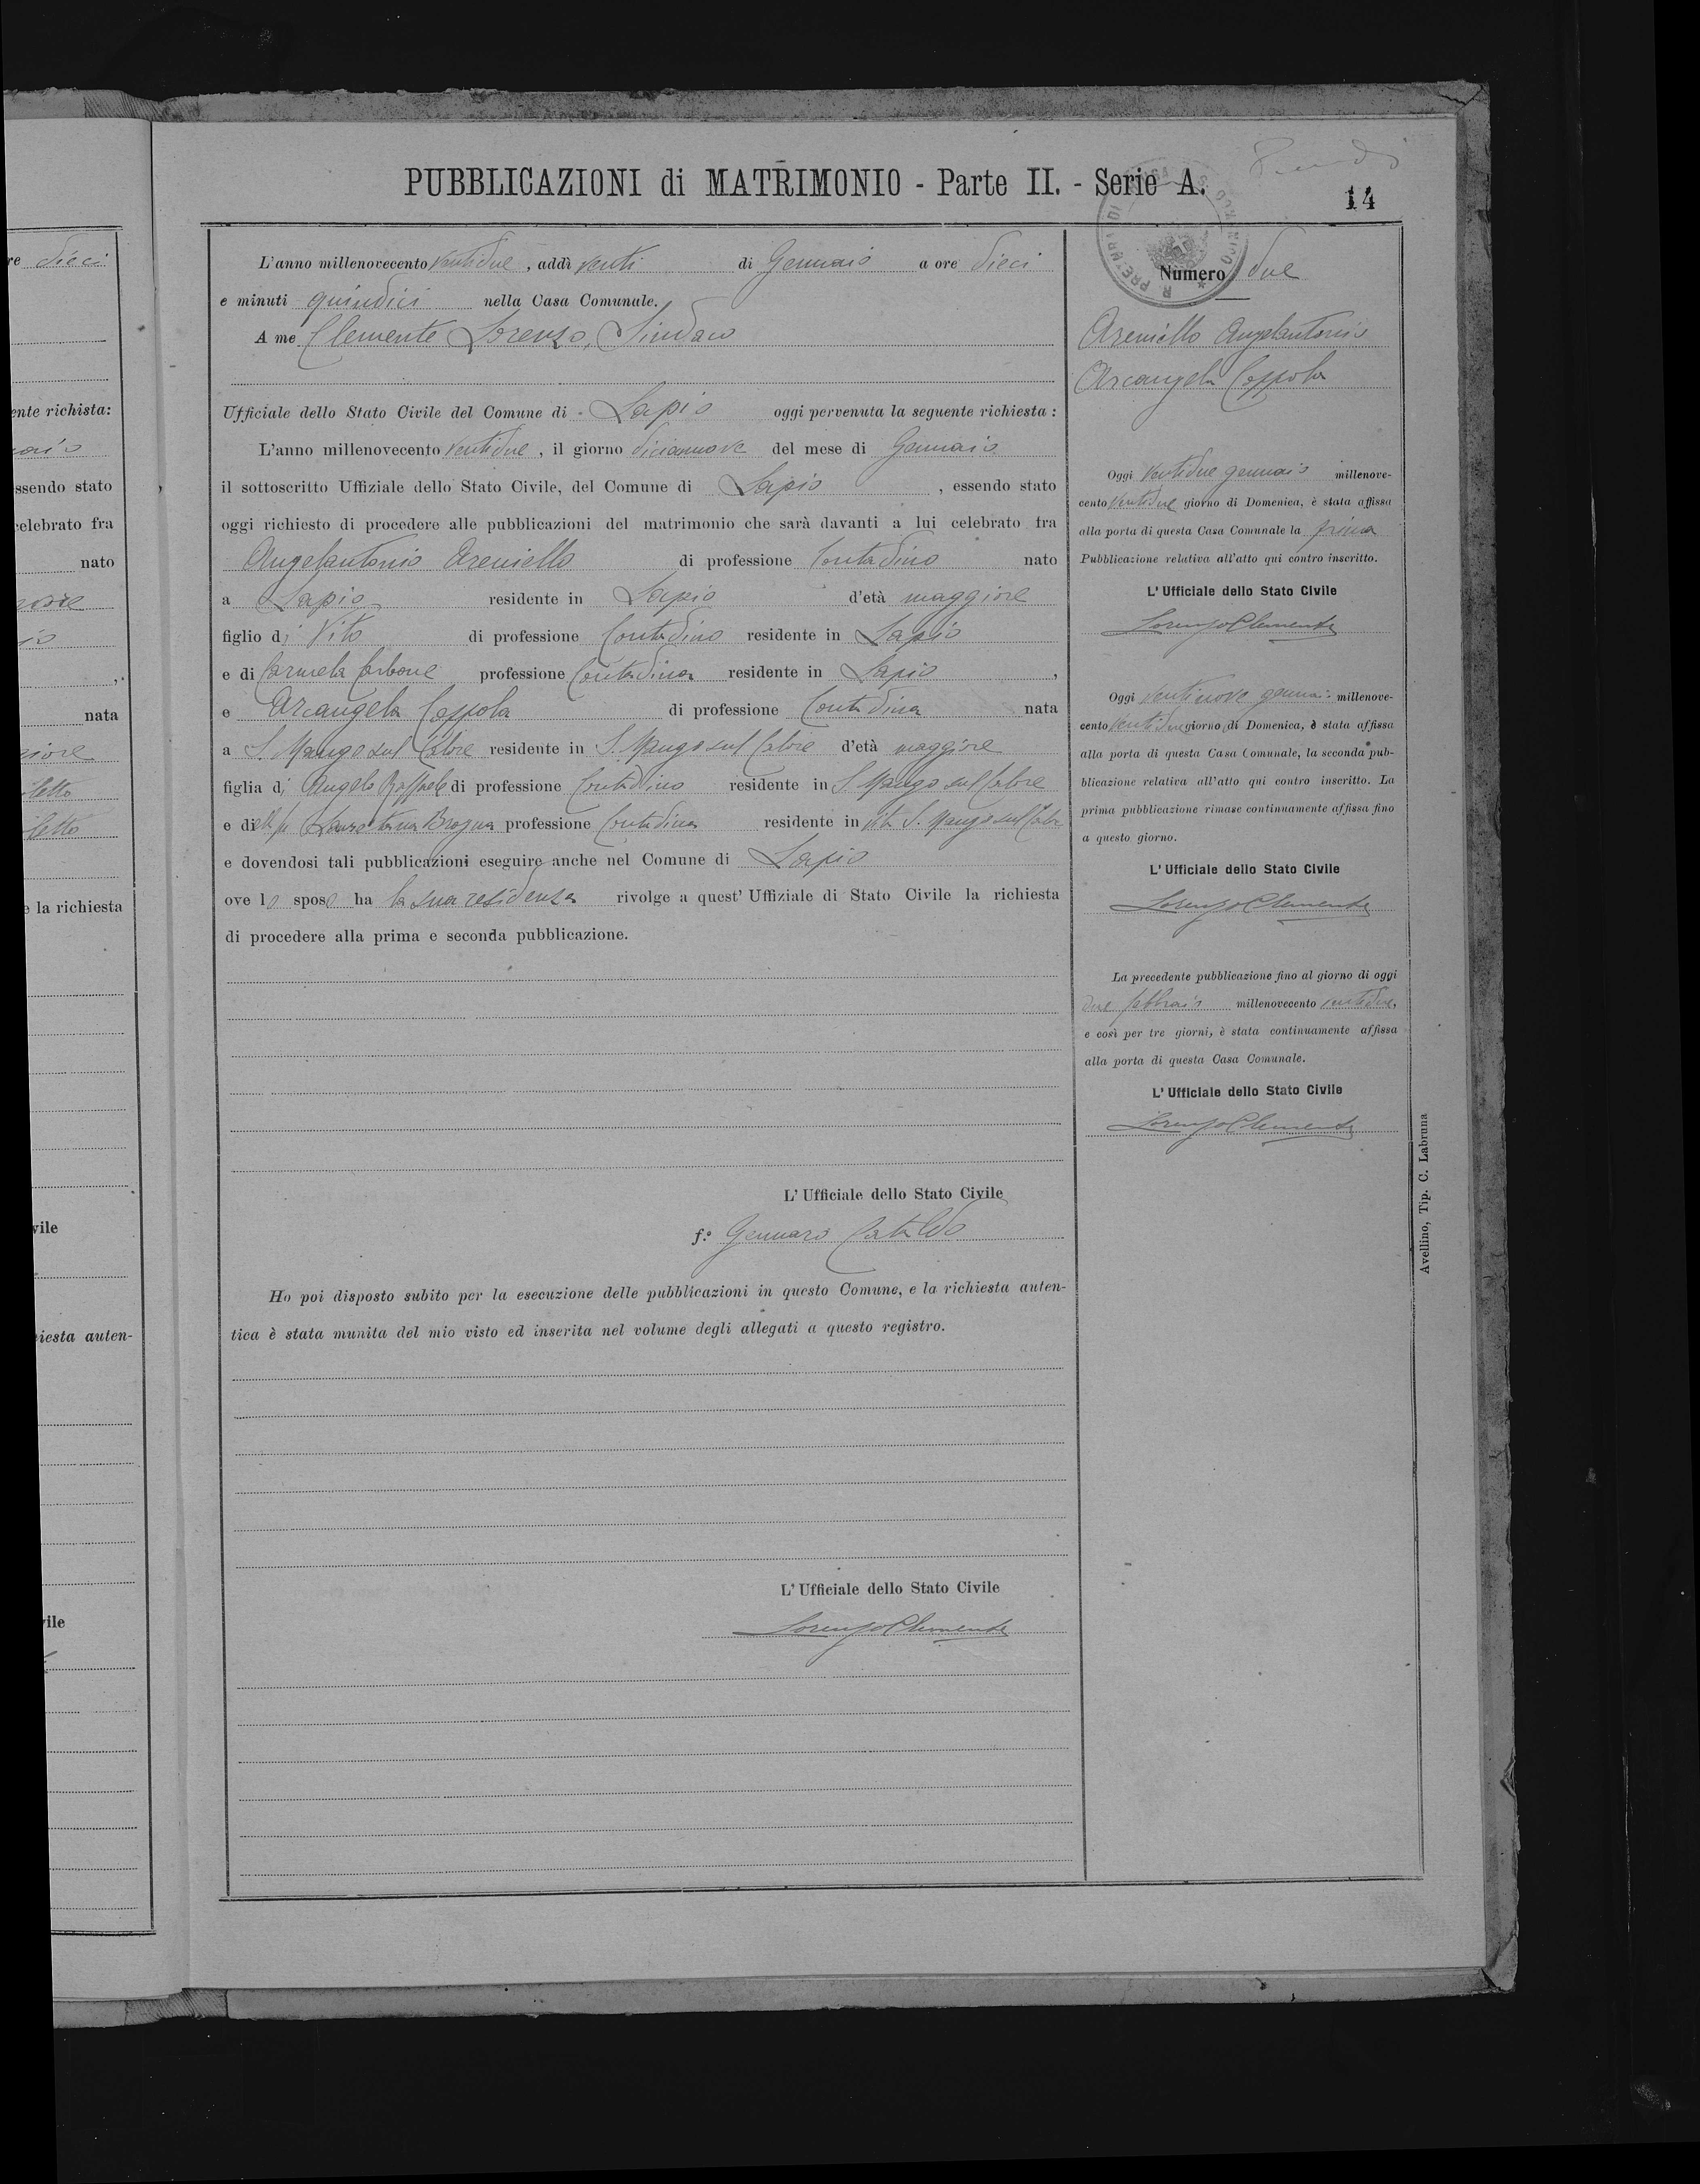 PUBBLICAZIONI di MATRIMONIO - Parte II. - Serie A.
14
L'anno millenovecento ventidue, addì venti di Gennaio a ore dieci
e minuti quindici nella Casa Comunale.
A me Clemente Lorenzo, Sindaco
Ufficiale dello Stato Civile del Comune di Lapio oggi pervenuta la seguente richiesta:
L'anno millenovecento ventidue, il giorno diciannove del mese di Gennaio
il sottoscritto Uffiziale dello Stato Civile, del Comune di Lapio, essendo stato
oggi richiesto di procedere alle pubblicazioni del matrimonio che sarà davanti a lui celebrato fra
Angelantonio Areniello di professione Contadino nato
a Lapio residente in Lapio d'età maggiore
figlio di Vito di professione Contadino residente in Lapio
e di Carmela Carbone professione Contadina residente in Lapio,
e Arcangela Coppola di professione Contadina nata
a S. Mango sul Calore residente in S. Mango sul Calore d'età maggiore
figlia di Angelo Raffaele di professione Contadino residente in S. Mango sul Calore
e di Brogna professione Contadina residente in S. Mango sul Calore
e dovendosi tali pubblicazioni eseguire anche nel Comune di Lapio
ove lo sposo ha la sua residenza rivolge a quest' Uffiziale di Stato Civile la richiesta
di procedere alla prima e seconda pubblicazione.
L' Ufficiale dello Stato Civile
f.º Gennaro Cataldo
Ho poi disposto subito per la esecuzione delle pubblicazioni in questo Comune, e la richiesta auten-
tica è stata munita del mio visto ed inserita nel volume degli allegati a questo registro.
L' Ufficiale dello Stato Civile
Lorenzo Clemente
Numero due
Areniello Angelantonio
Arcangela Coppola
Oggi ventidue gennaio millenove-
cento ventidue giorno di Domenica, è stata affissa
alla porta di questa Casa Comunale la prima
Pubblicazione relativa all'atto qui contro inscritto.
L' Ufficiale dello Stato Civile
Lorenzo Clemente
Oggi ventinove genna: millenove-
cento ventidue giorno di Domenica, è stata affissa
alla porta di questa Casa Comunale, la seconda pub-
blicazione relativa all'atto qui contro inscritto. La
prima pubblicazione rimase continuamente affissa fino
a questo giorno.
L' Ufficiale dello Stato Civile
Lorenzo Clemente
La precedente pubblicazione fino al giorno di oggi
due febbraio millenovecento ventidue,
e così per tre giorni, è stata continuamente affissa
alla porta di questa Casa Comunale.
L' Ufficiale dello Stato Civile
Lorenzo Clemente
Avellino, Tip. C. Labruna
re dieci
ente richista:
ssendo stato
celebrato fra
nato
nata
e la richiesta
vile
iesta auten-
vile